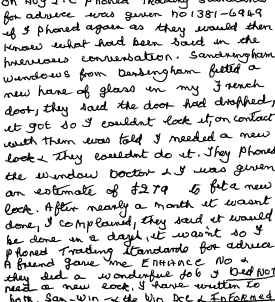 on Aug 21c Phoned Trading Standards
for advice was given no 1381-6949
if I phoned again as they would then
know what had been said in the
previous conversation. Sandringham
Windows from Dersingham fitted a
new pane of glass in my French
door, they said the door had dropped,
it got so I couldnt lock it, on contact
with them was told I needed a new
lock & They couldnt do it. They Phoned
the window Doctor & I was given
an estimate of £279 to fit a new
lock. After nearly a month it wasnt
done, I complained, they said it would
be done in a days, it wasnt so I
phoned Trading Standards for advice
A friend gave me ENHANCE No &
they did a wonderful job I DID NOT
need a new lock. I have written to
both San-Win & the Win Doc & INFORMED